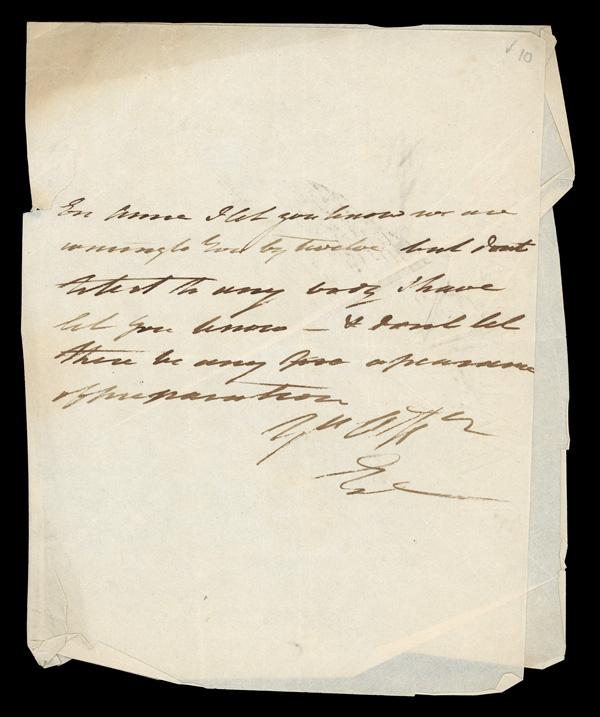 10
Anna I let you know we are
coming to You by twelve but dont
to any body I have
let you know – & don't let
there be any apearance
of preparation
Yrs